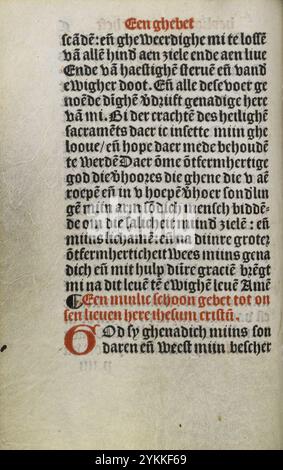 Een ghebet
scādē: eñ ghe weerdighe mi te lossē
vā allē hind aen ziele ende aen liue
Ende vā haestighē steruē eñ vand
ewigher doot. Eñ alle dese voer ge
noēde dīghē vdrijft genadige here
vā mi. Bi der crachtē des heilighē
sacramēts daer ic in sette mijn ghe
looue/ eñ hope daer mede behoudē
te werdē Daer ōme ōtfermhertige
god die vhoores die ghene die v aē
roepē eñ in v hoepē vhoer sondlin
gē mijn arm sōdich mensch biddē
de om die salicheit mijnd zielē : eñ
mijns lichamē: eñ na dijnre groter
ōtfermherticheit wees mijns gena
dich eñ mit hulp dijre graciē brēgt
mi na dit leuē tē ewighē leuē Amē
¶ Een mulic schoon gebet tot on
sen lieuen here ihesum cristū.
God sy ghenadich mijns son
daren eñ weest mijn bescher
alamy
www.alamy.com
2YKKF69